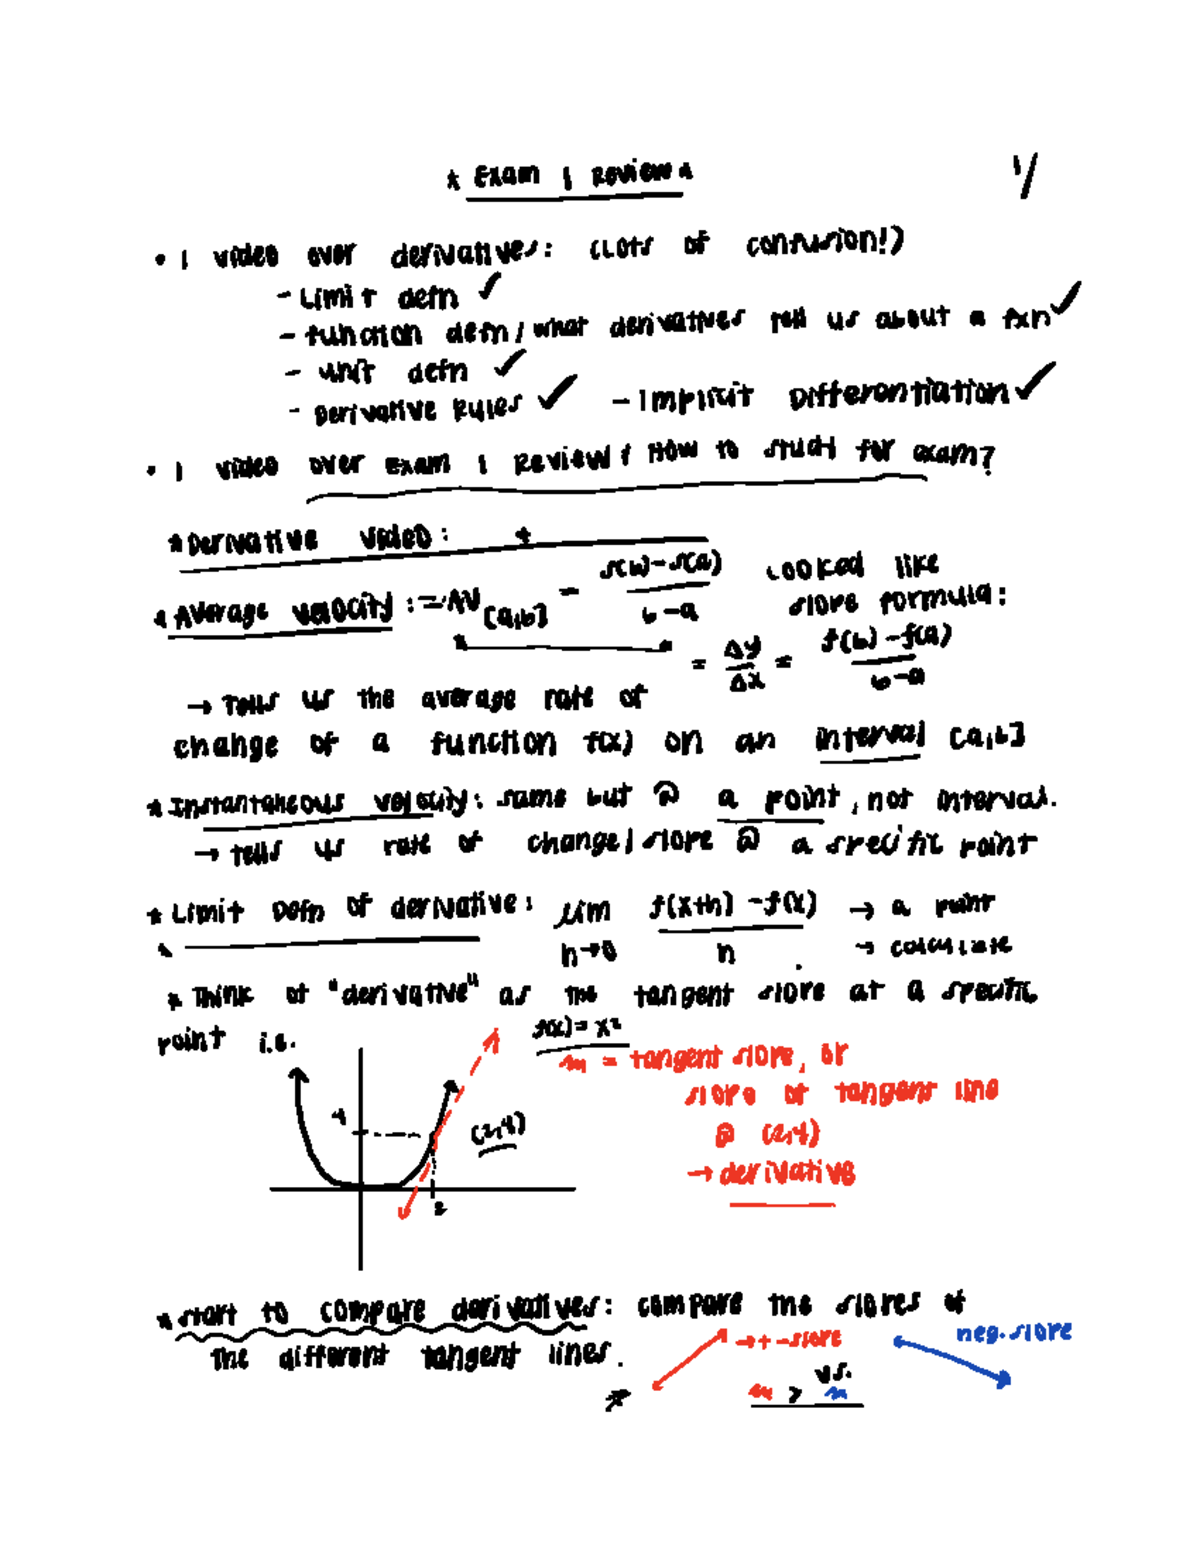 * Exam 1 Review *
1/
• 1 video over derivatives: (Lots of confusion!)
- Limit defn ✓
- function defn / what derivatives tell us about a fxn ✓
- unit defn ✓
- Derivative Rules ✓ - Implicit Differentiation ✓
• 1 video over Exam 1 Review / How to study for exam?
* Derivative video: *
* Average velocity: = AV[a,b] = f(b)-f(a) / b-a Looked like
slope formula:
= Δy/Δx = f(b)-f(a) / b-a
→ Tells us the average rate of
change of a function f(x) on an interval [a,b]
* Instantaneous velocity: same but @ a point, not interval.
→ tells us rate of change/slope @ a specific point
* Limit Defn of derivative: lim h→0 f(x+h) - f(x) / h → a point
→ calculate
* Think of "derivative" as the tangent slope at a specific
point i.e.
f(x) = x²
m = tangent slope, or
slope of tangent line
@ (2,4)
→ derivative
4
(2,4)
2
* Start to compare derivatives: compare the slopes of
the different tangent lines.
→ + slope
neg. slope
vs.
m > m